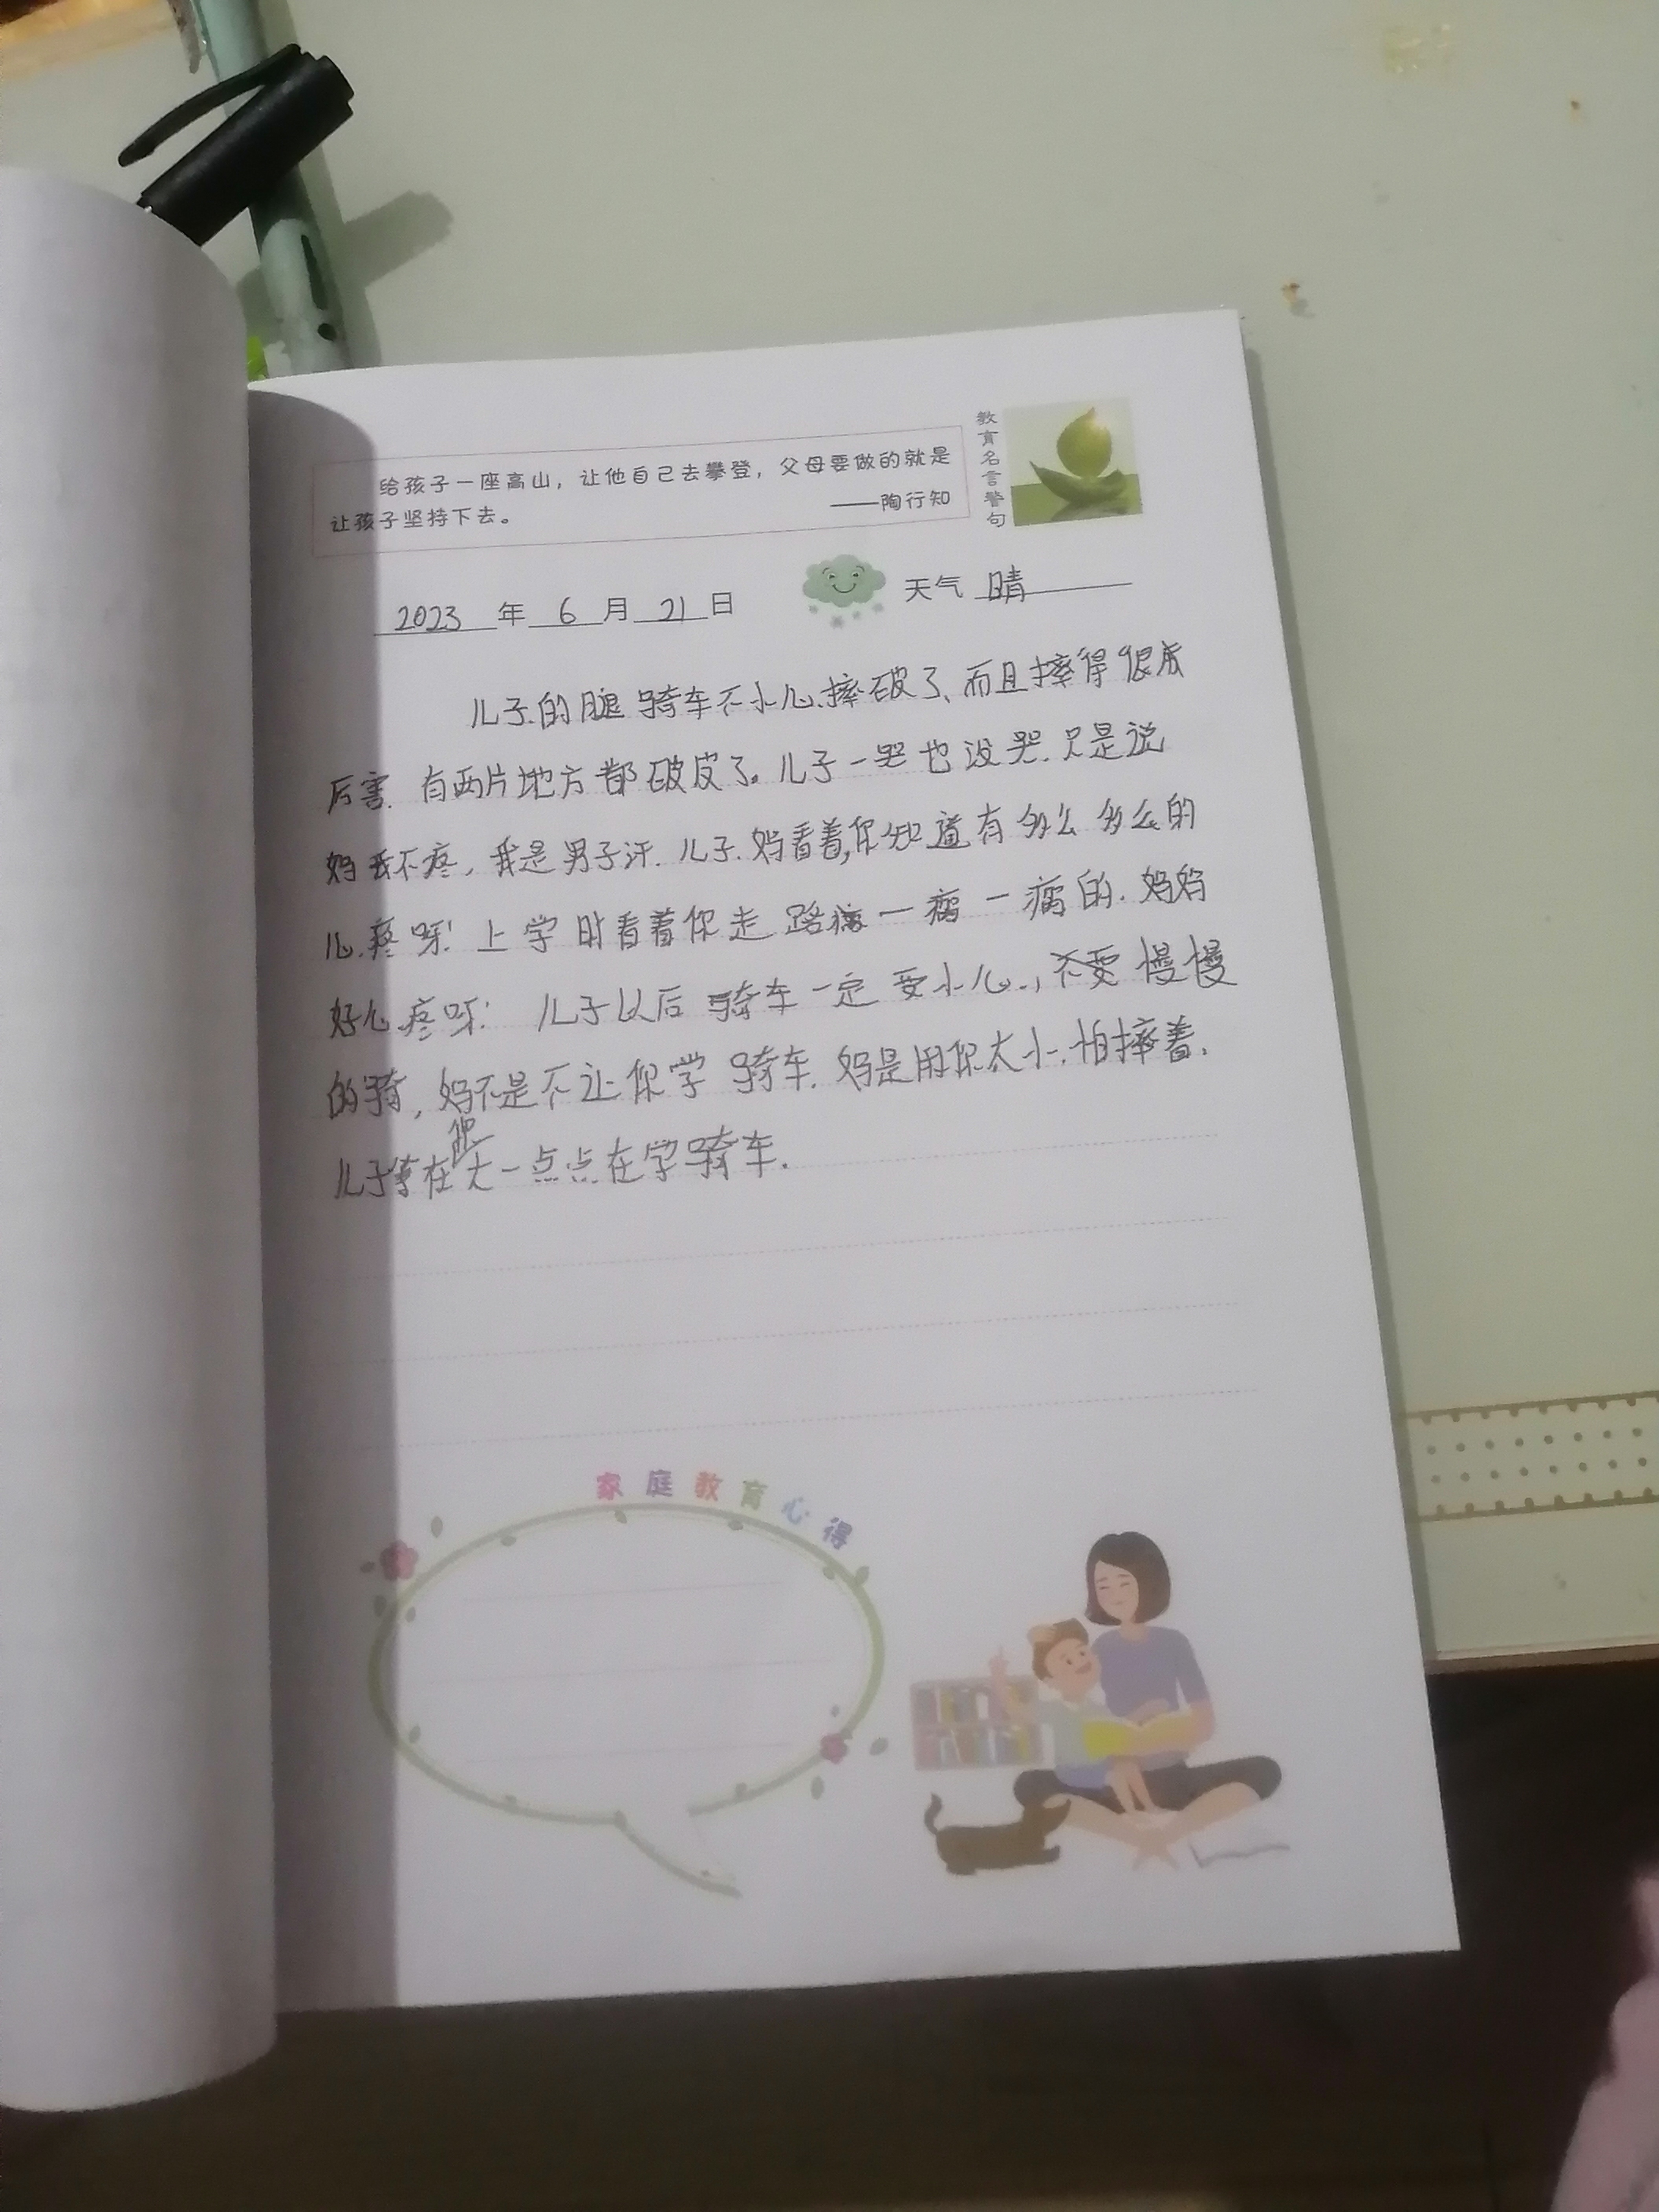 给孩子一座高山，让他自己去攀登，父母要做的就是
让孩子坚持下去。
——陶行知
教育名言警句
2023 年 6 月 21 日
天气 晴
儿子的腿骑车不小心摔破了、而且摔得很
厉害. 有两片地方都破皮了。儿子一哭也没哭.只是说
妈我不疼，我是男子汗.儿子.妈看着,你知道有多么多么的
心疼呀! 上学时看着你走路 一瘸一瘸的.妈妈
好心疼呀! 儿子以后骑车一定要小心.，要慢慢
的骑，妈不是不让你学骑车.妈是用你太小.怕摔着.
儿子等在你大一点点在学骑车.
家庭教育心得